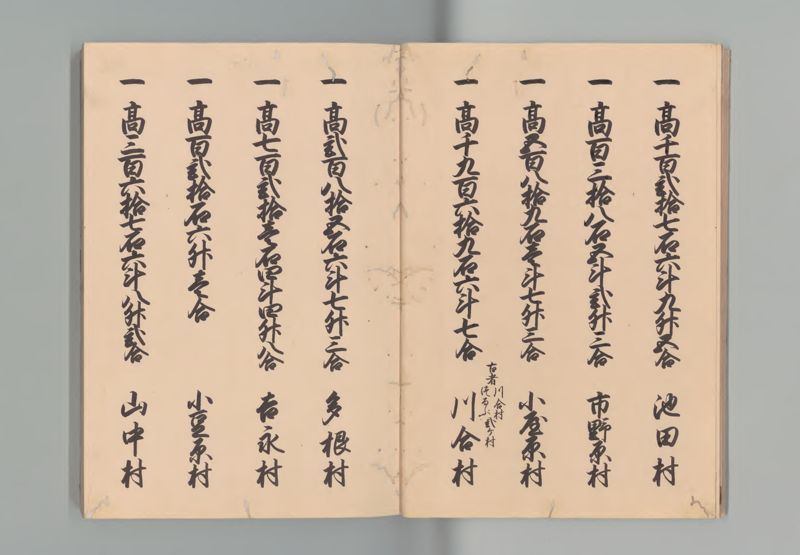 一 高千百弐拾七石六斗九升五合 池田村
一 高百三拾八石五斗弐升三合 市野原村
一 高五百八拾九石壱斗七升三合 小屋原村
古者川合村
弐ヶ村
一 高千九百六拾九石六斗七合 川合村
一 高弐百八拾五石六斗七升三合 多根村
一 高七百弐拾壱石四斗四升八合 吉永村
一 高百弐拾石六升壱合 小豆原村
一 高三百六拾七石六斗八升弐合 山中村